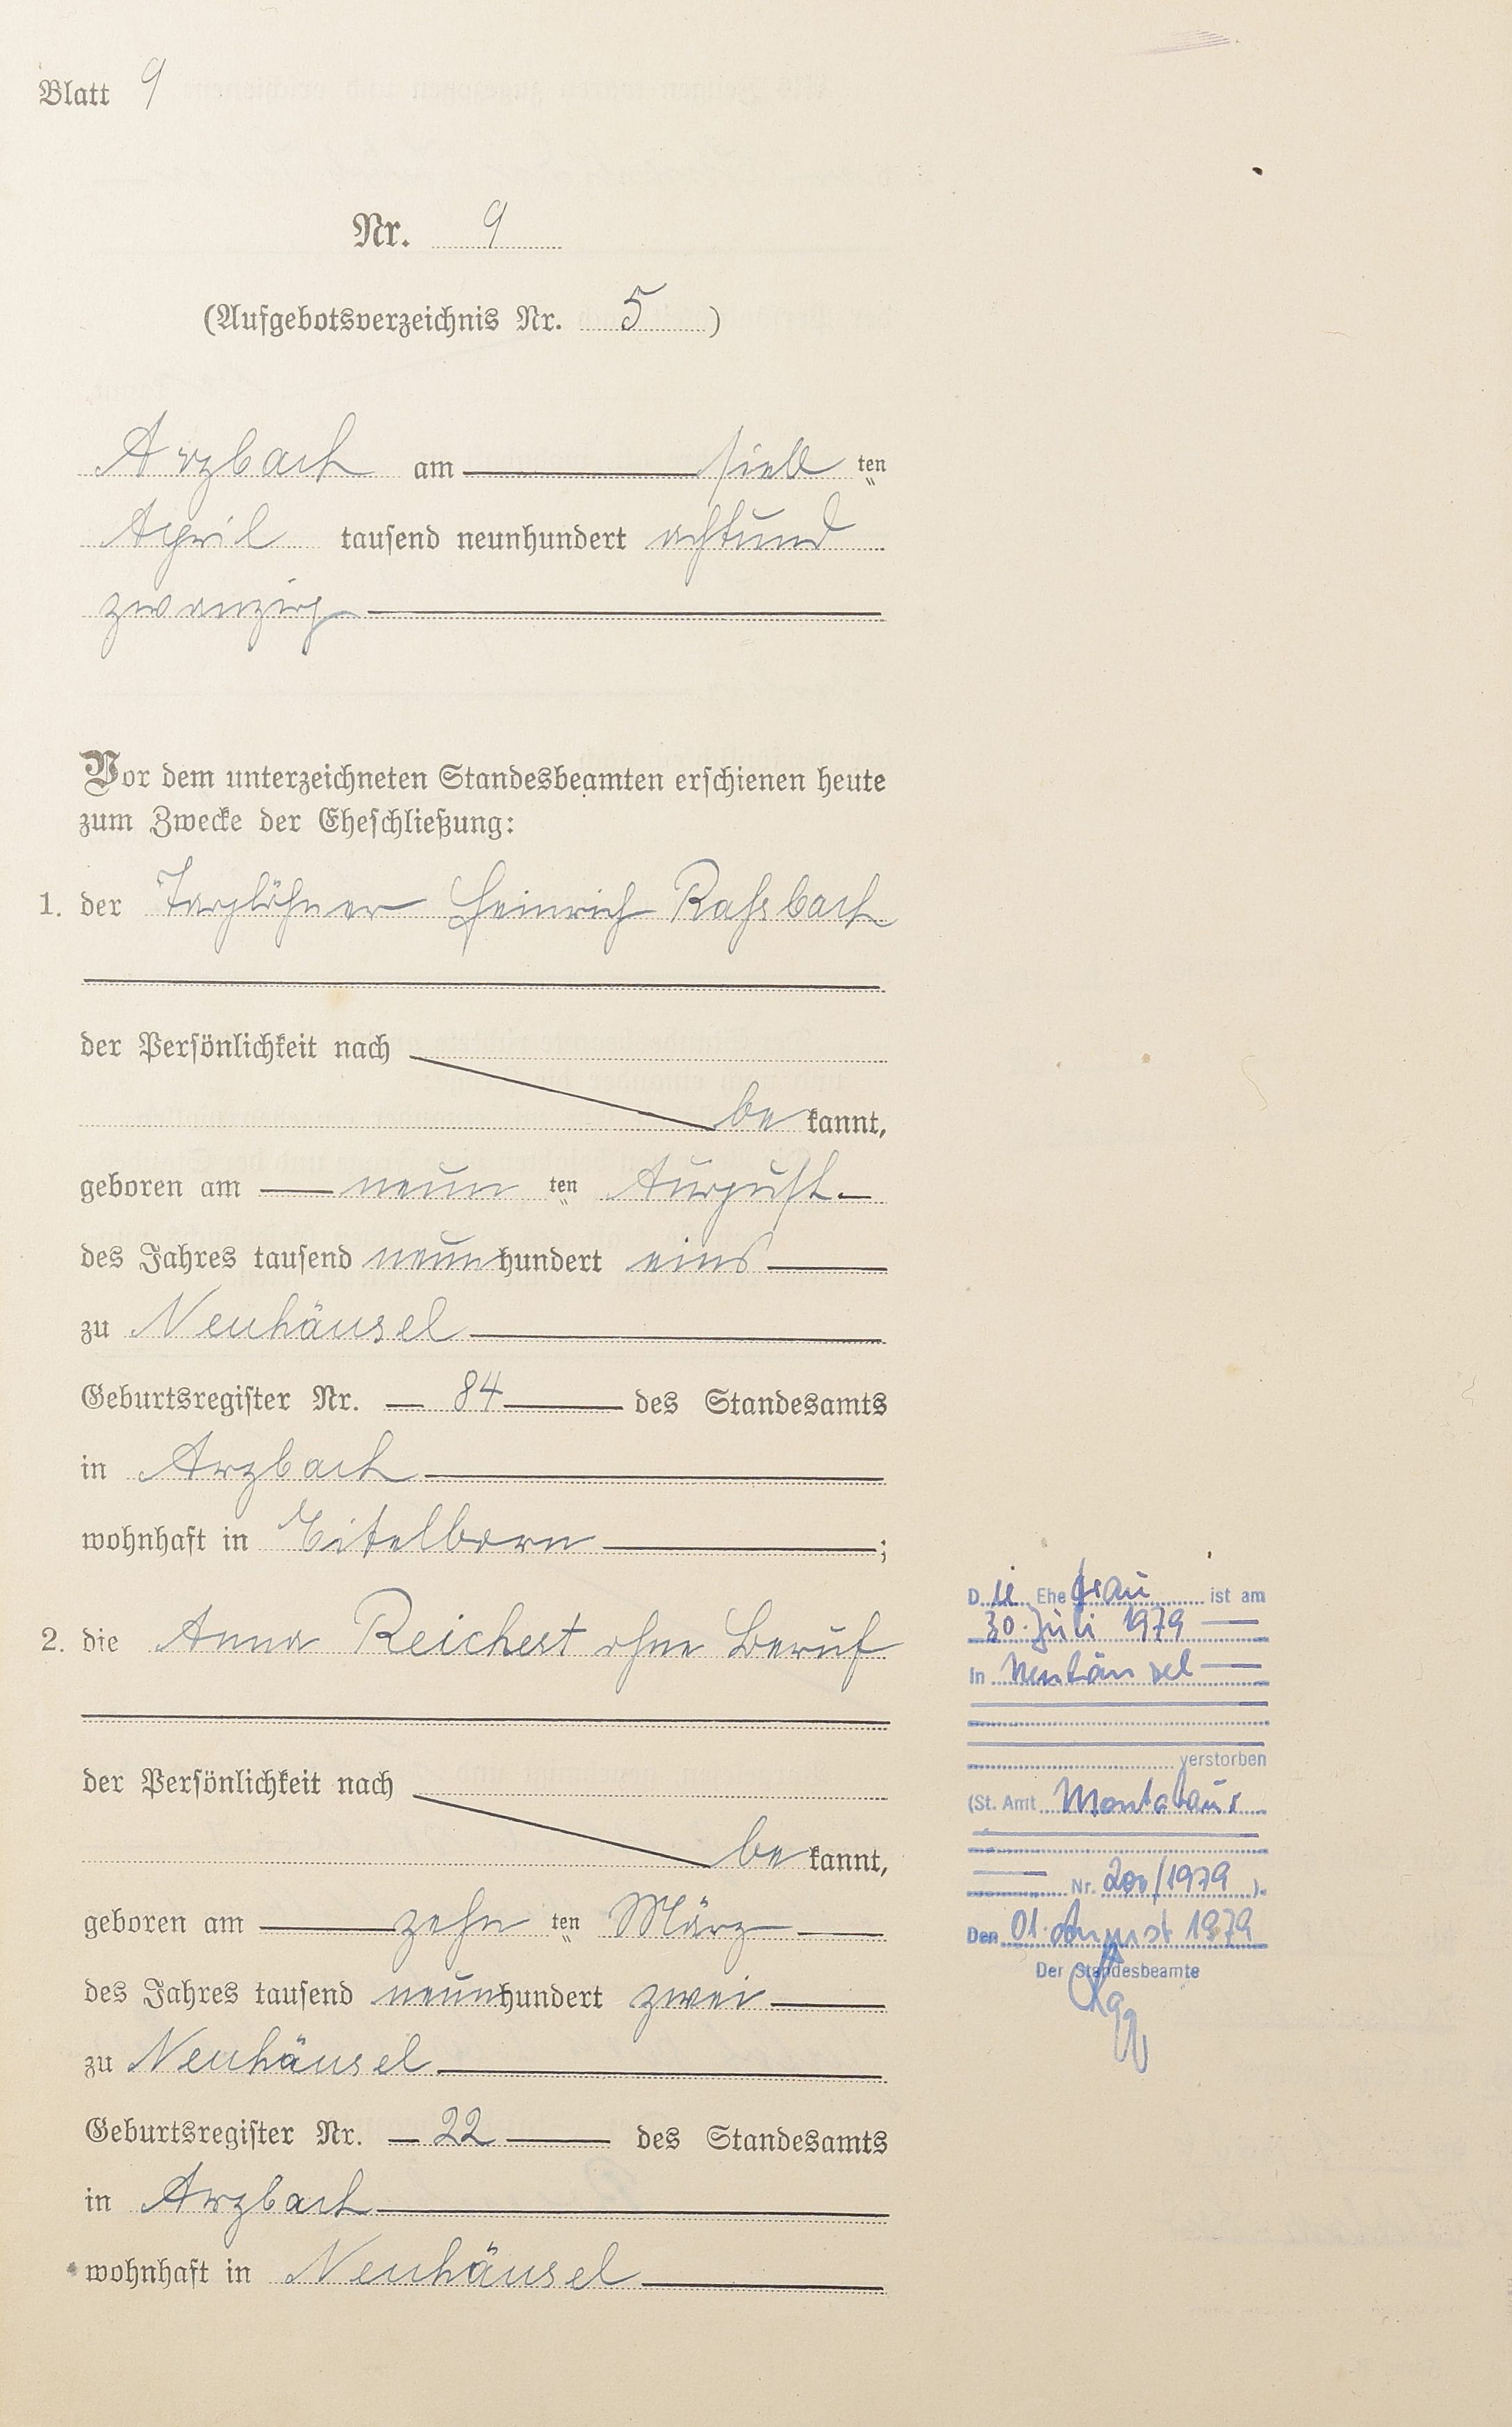 Blatt 9
Nr. 9
(Aufgebotsverzeichnis Nr. 5 )
Arzbach am sieb ten
April tausend neunhundert achtund
zwanzig
Vor dem unterzeichneten Standesbeamten erschienen heute
zum Zwecke der Eheschließung:
1. der Taglöhner Heinrich Raßbach
der Persönlichkeit nach
be kannt,
geboren am neun ten August
des Jahres tausend neunhundert eins
zu Neuhäusel
Geburtsregister Nr. 84 des Standesamts
in Arzbach
wohnhaft in Eitelborn ;
2. die Anna Reichert ohne Beruf
der Persönlichkeit nach
be kannt,
geboren am zehn ten März
des Jahres tausend neunhundert zwei
zu Neuhäusel
Geburtsregister Nr. 22 des Standesamts
in Arzbach
wohnhaft in Neuhäusel
Die Ehefrau ist am
30. Juli 1979
in Neuhäusel
verstorben
(St. Amt Montabaur
Nr. 200/1979 ).
Den 01. August 1979
Der Standesbeamte